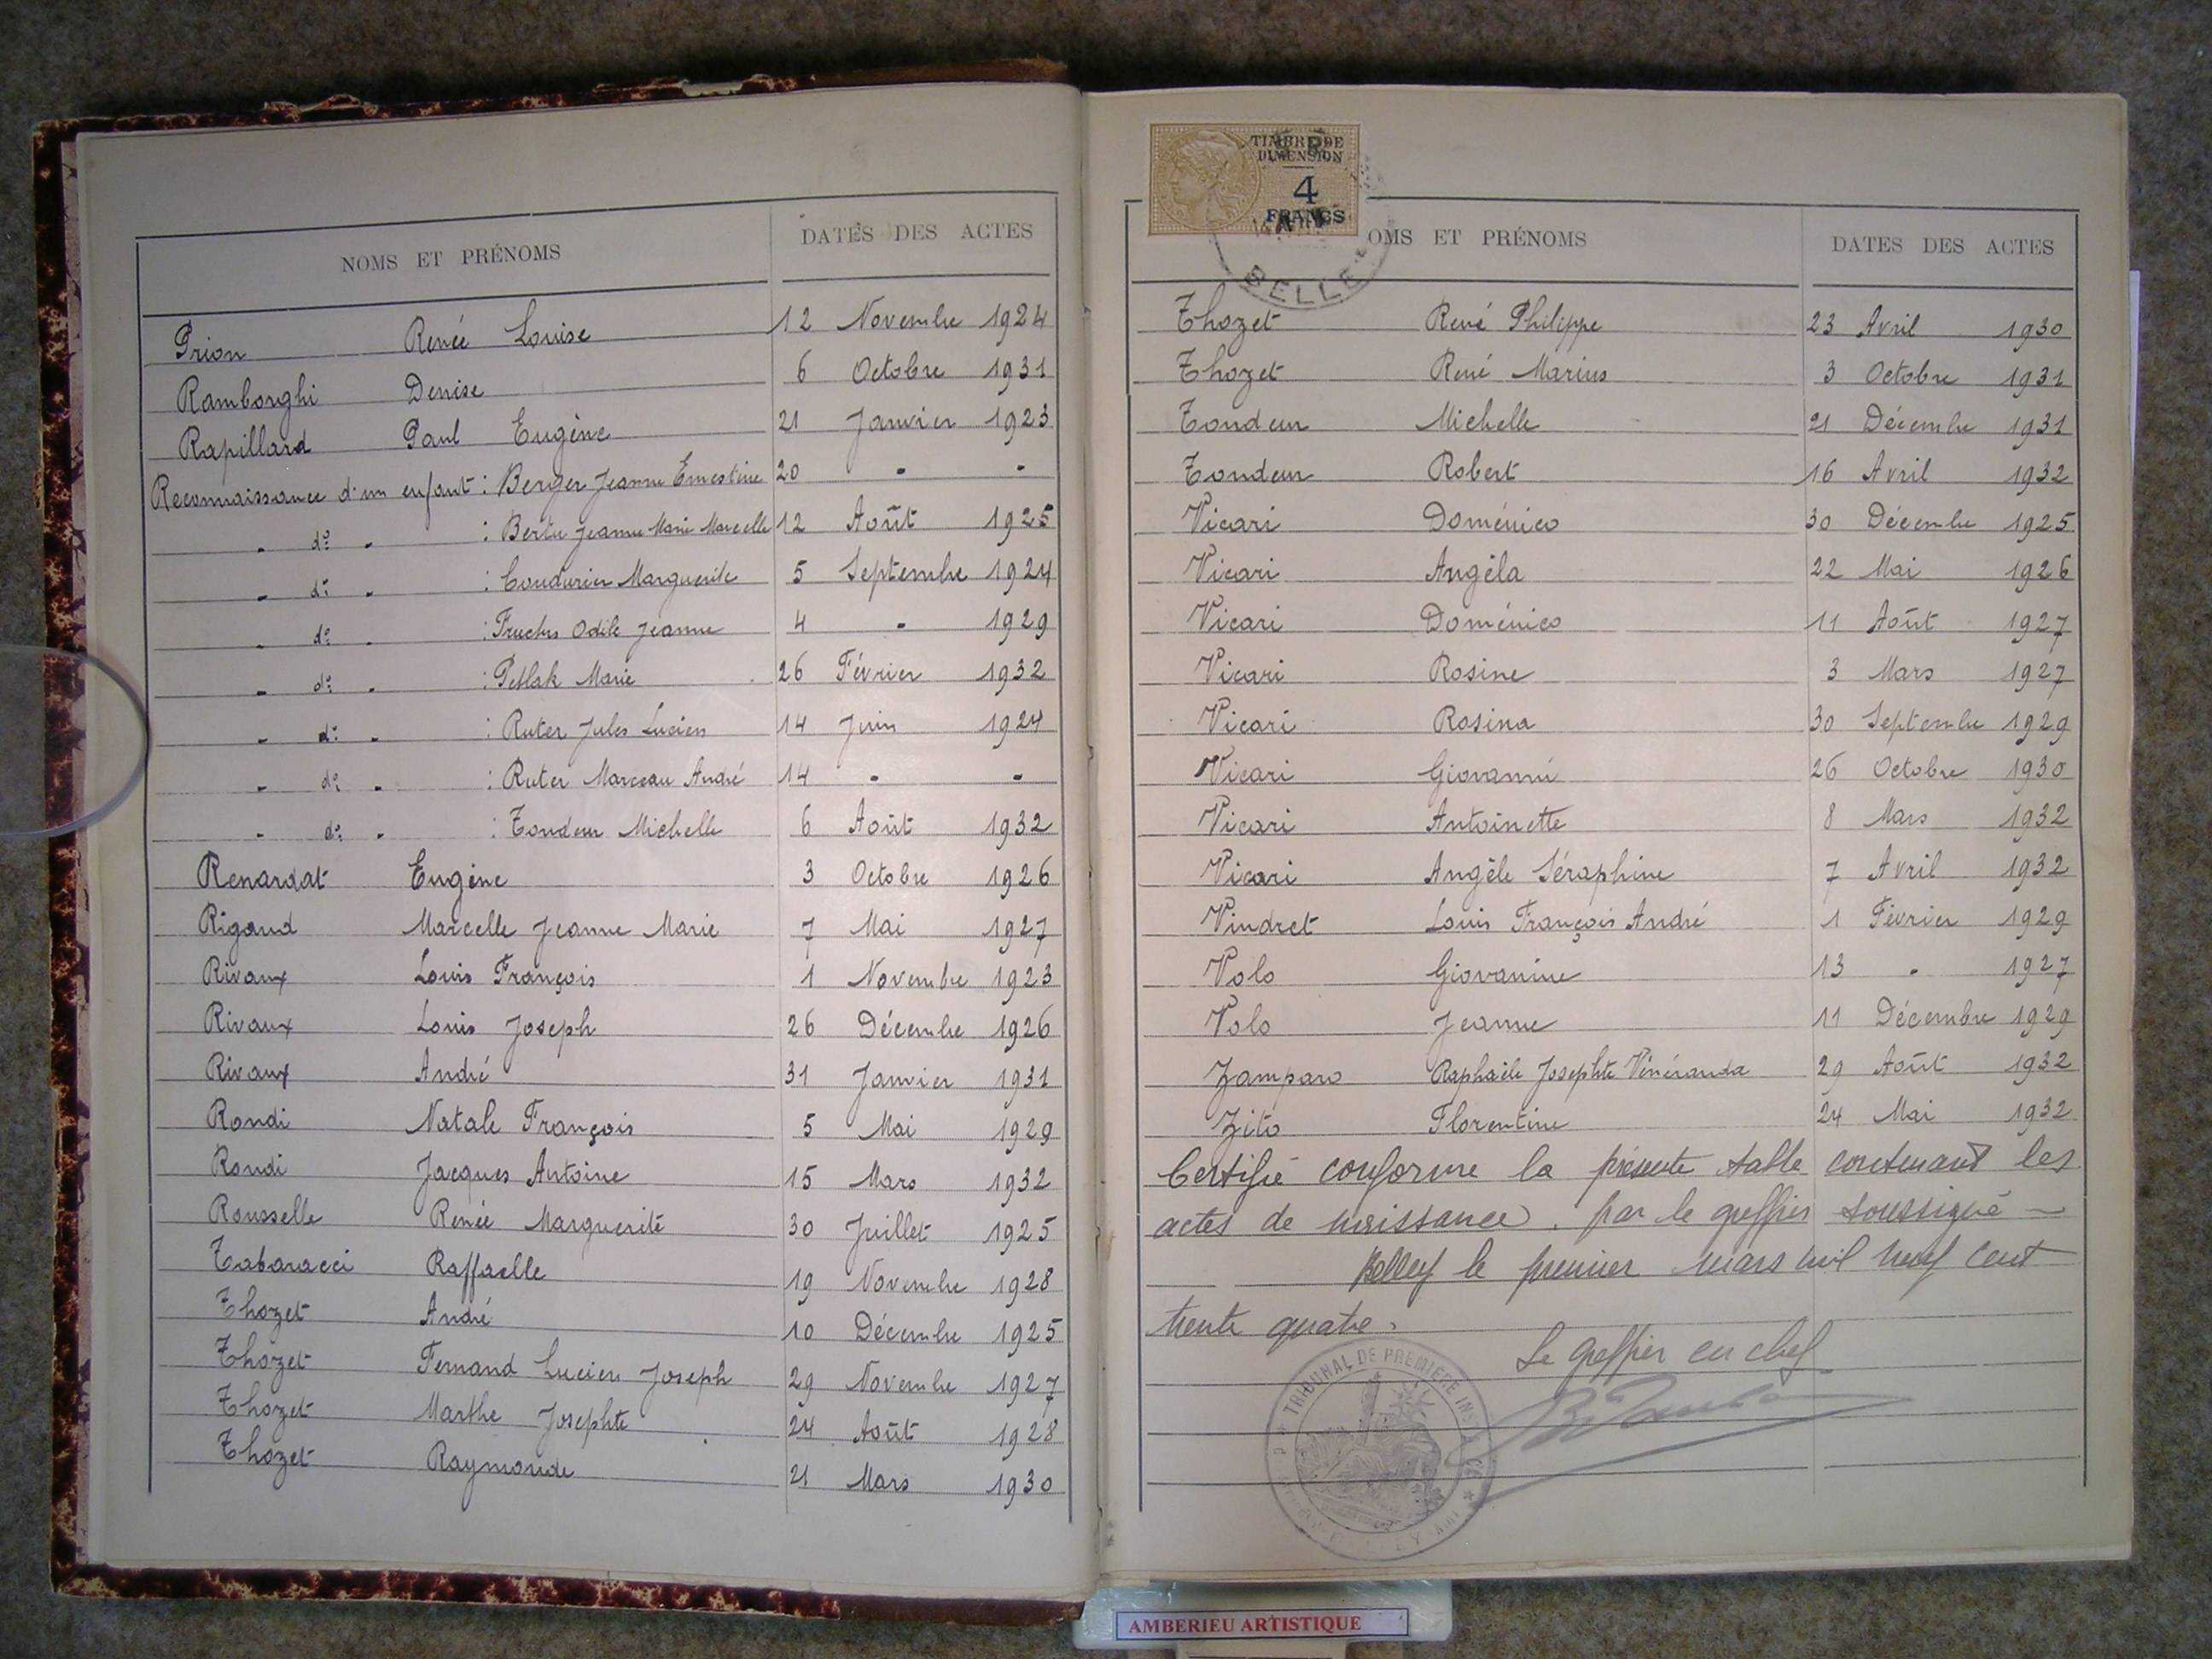 NOMS ET PRÉNOMS DATES DES ACTES
Prion Renée Louise 12 Novembre 1924
Ramborghi Denise 6 Octobre 1931
Rapillard Paul Eugène 21 Janvier 1923
Reconnaissance d'un enfant : Berger Jeanne Ernestine 20 " "
" do " : Bertu Jeanne Marie Marcelle 12 Août 1925
" do " : Coudurier Marguerite 5 Septembre 1924
" do " : Odile Jeanne 4 " 1929
" do " : Petlak Marie 26 Février 1932
" do " : Ruter Jules Lucien 14 Juin 1924
" do " : Ruter Marceau André 14 " "
" do " : Tondeur Michelle 6 Août 1932
Renardat Eugène 3 Octobre 1926
Rigaud Marcelle Jeanne Marie 7 Mai 1927
Rivaux Louis François 1 Novembre 1923
Rivaux Louis Joseph 26 Décembre 1926
Rivaux André 31 Janvier 1931
Rondi Natale François 5 Mai 1929
Rondi Jacques Antoine 15 Mars 1932
Rousselle Renée Marguerite 30 Juillet 1925
Tabaracci Raffaelle 19 Novembre 1928
Thozet André 10 Décembre 1925
Thozet Fernand Lucien Joseph 29 Novembre 1927
Thozet Marthe Josephte 24 Août 1928
Thozet Raymonde 21 Mars 1930
TIMBRE DE
DIMENSION
4
FRANCS
BELLE
OMS ET PRÉNOMS DATES DES ACTES
Thozet René Philippe 23 Avril 1930
Thozet René Marius 3 Octobre 1931
Tondeur Michelle 21 Décembre 1931
Tondeur Robert 16 Avril 1932
Vicari Doménico 30 Décembre 1925
Vicari Angéla 22 Mai 1926
Vicari Doménico 11 Août 1927
Vicari Rosine 3 Mars 1927
Vicari Rosina 30 Septembre 1929
Vicari Giovanni 26 Octobre 1930
Vicari Antoinette 8 Mars 1932
Vicari Angèle Séraphine 7 Avril 1932
Vindret Louis François André 1 Février 1929
Volo Giovanine 13 " 1927
Volo Jeanne 11 Décembre 1929
Zamparo Raphaële Josephte Vénéranda 29 Août 1932
Zito Florentine 24 Mai 1932
Certifié conforme la présente table contenant les
actes de naissance, par le greffier soussigné —
Belley le premier mars mil neuf cent
trente quatre.
Le greffier en chef
TRIBUNAL DE PREMIÈRE INSTANCE
AMBERIEU ARTISTIQUE